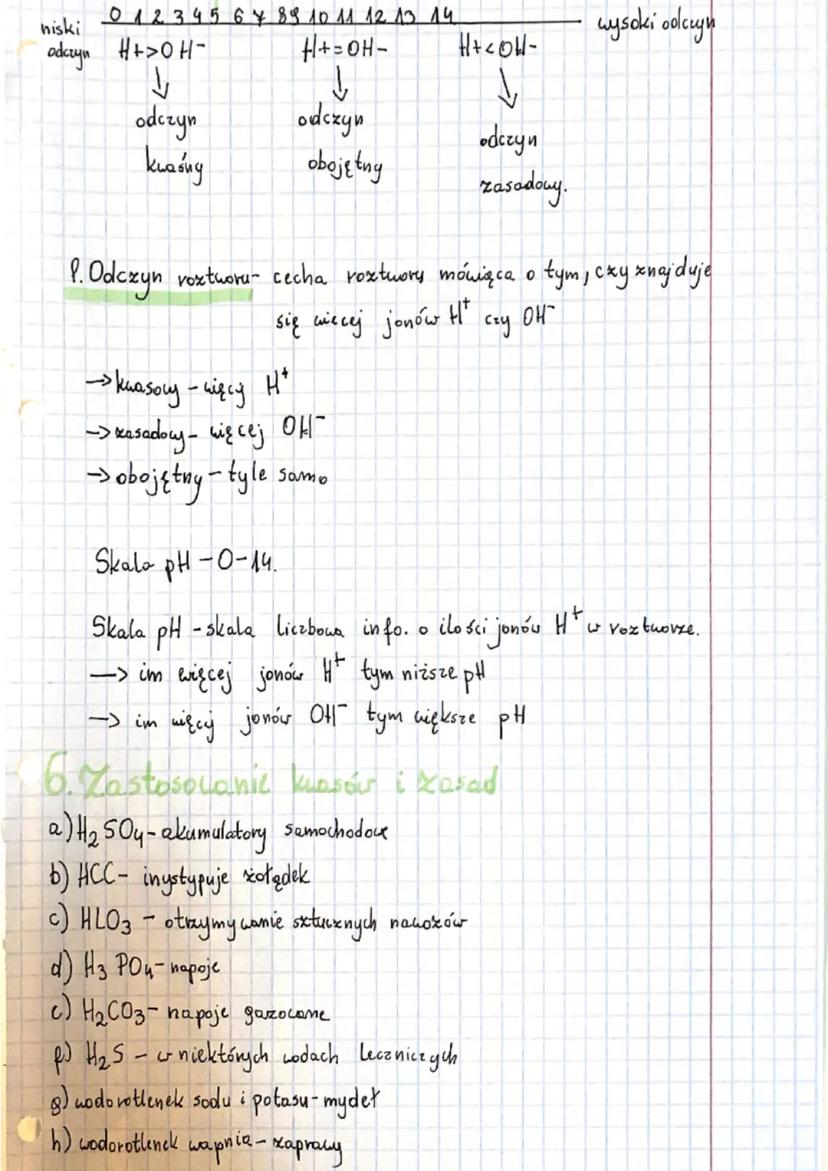 0 1 2 3 4 5 6 7 8 9 10 11 12 13 14
niski odczyn
wysoki odczyn
H+>OH- H+=OH- H+<OH-
↓ ↓ ↓
odczyn odczyn odczyn
kwaśny obojętny zasadowy.
P. Odczyn roztworu- cecha roztworu mówiąca o tym, czy znajduje
się więcej jonów H⁺ czy OH⁻
→ kwasowy - więcy H⁺
→ zasadowy - więcej OH⁻
→ obojętny - tyle samo
Skala pH - 0-14.
Skala pH - skala liczbowa info. o ilości jonów H⁺ w roztworze.
→ im więcej jonów H⁺ tym niższe pH
→ im więcj jonów OH⁻ tym większe pH
6. Zastosowanie kwasów i zasad
a) H₂SO₄ - akumulatory samochodowe
b) HCC - inystypuje żołądek
c) HLO₃ - otrzymywanie sztucznych nawozów
d) H₃PO₄ - napoje
e) H₂CO₃ - napoje gazowane
f) H₂S - w niektórych wodach leczniczych
g) wodorotlenek sodu i potasu - mydeł
h) wodorotlenek wapnia - zaprawy